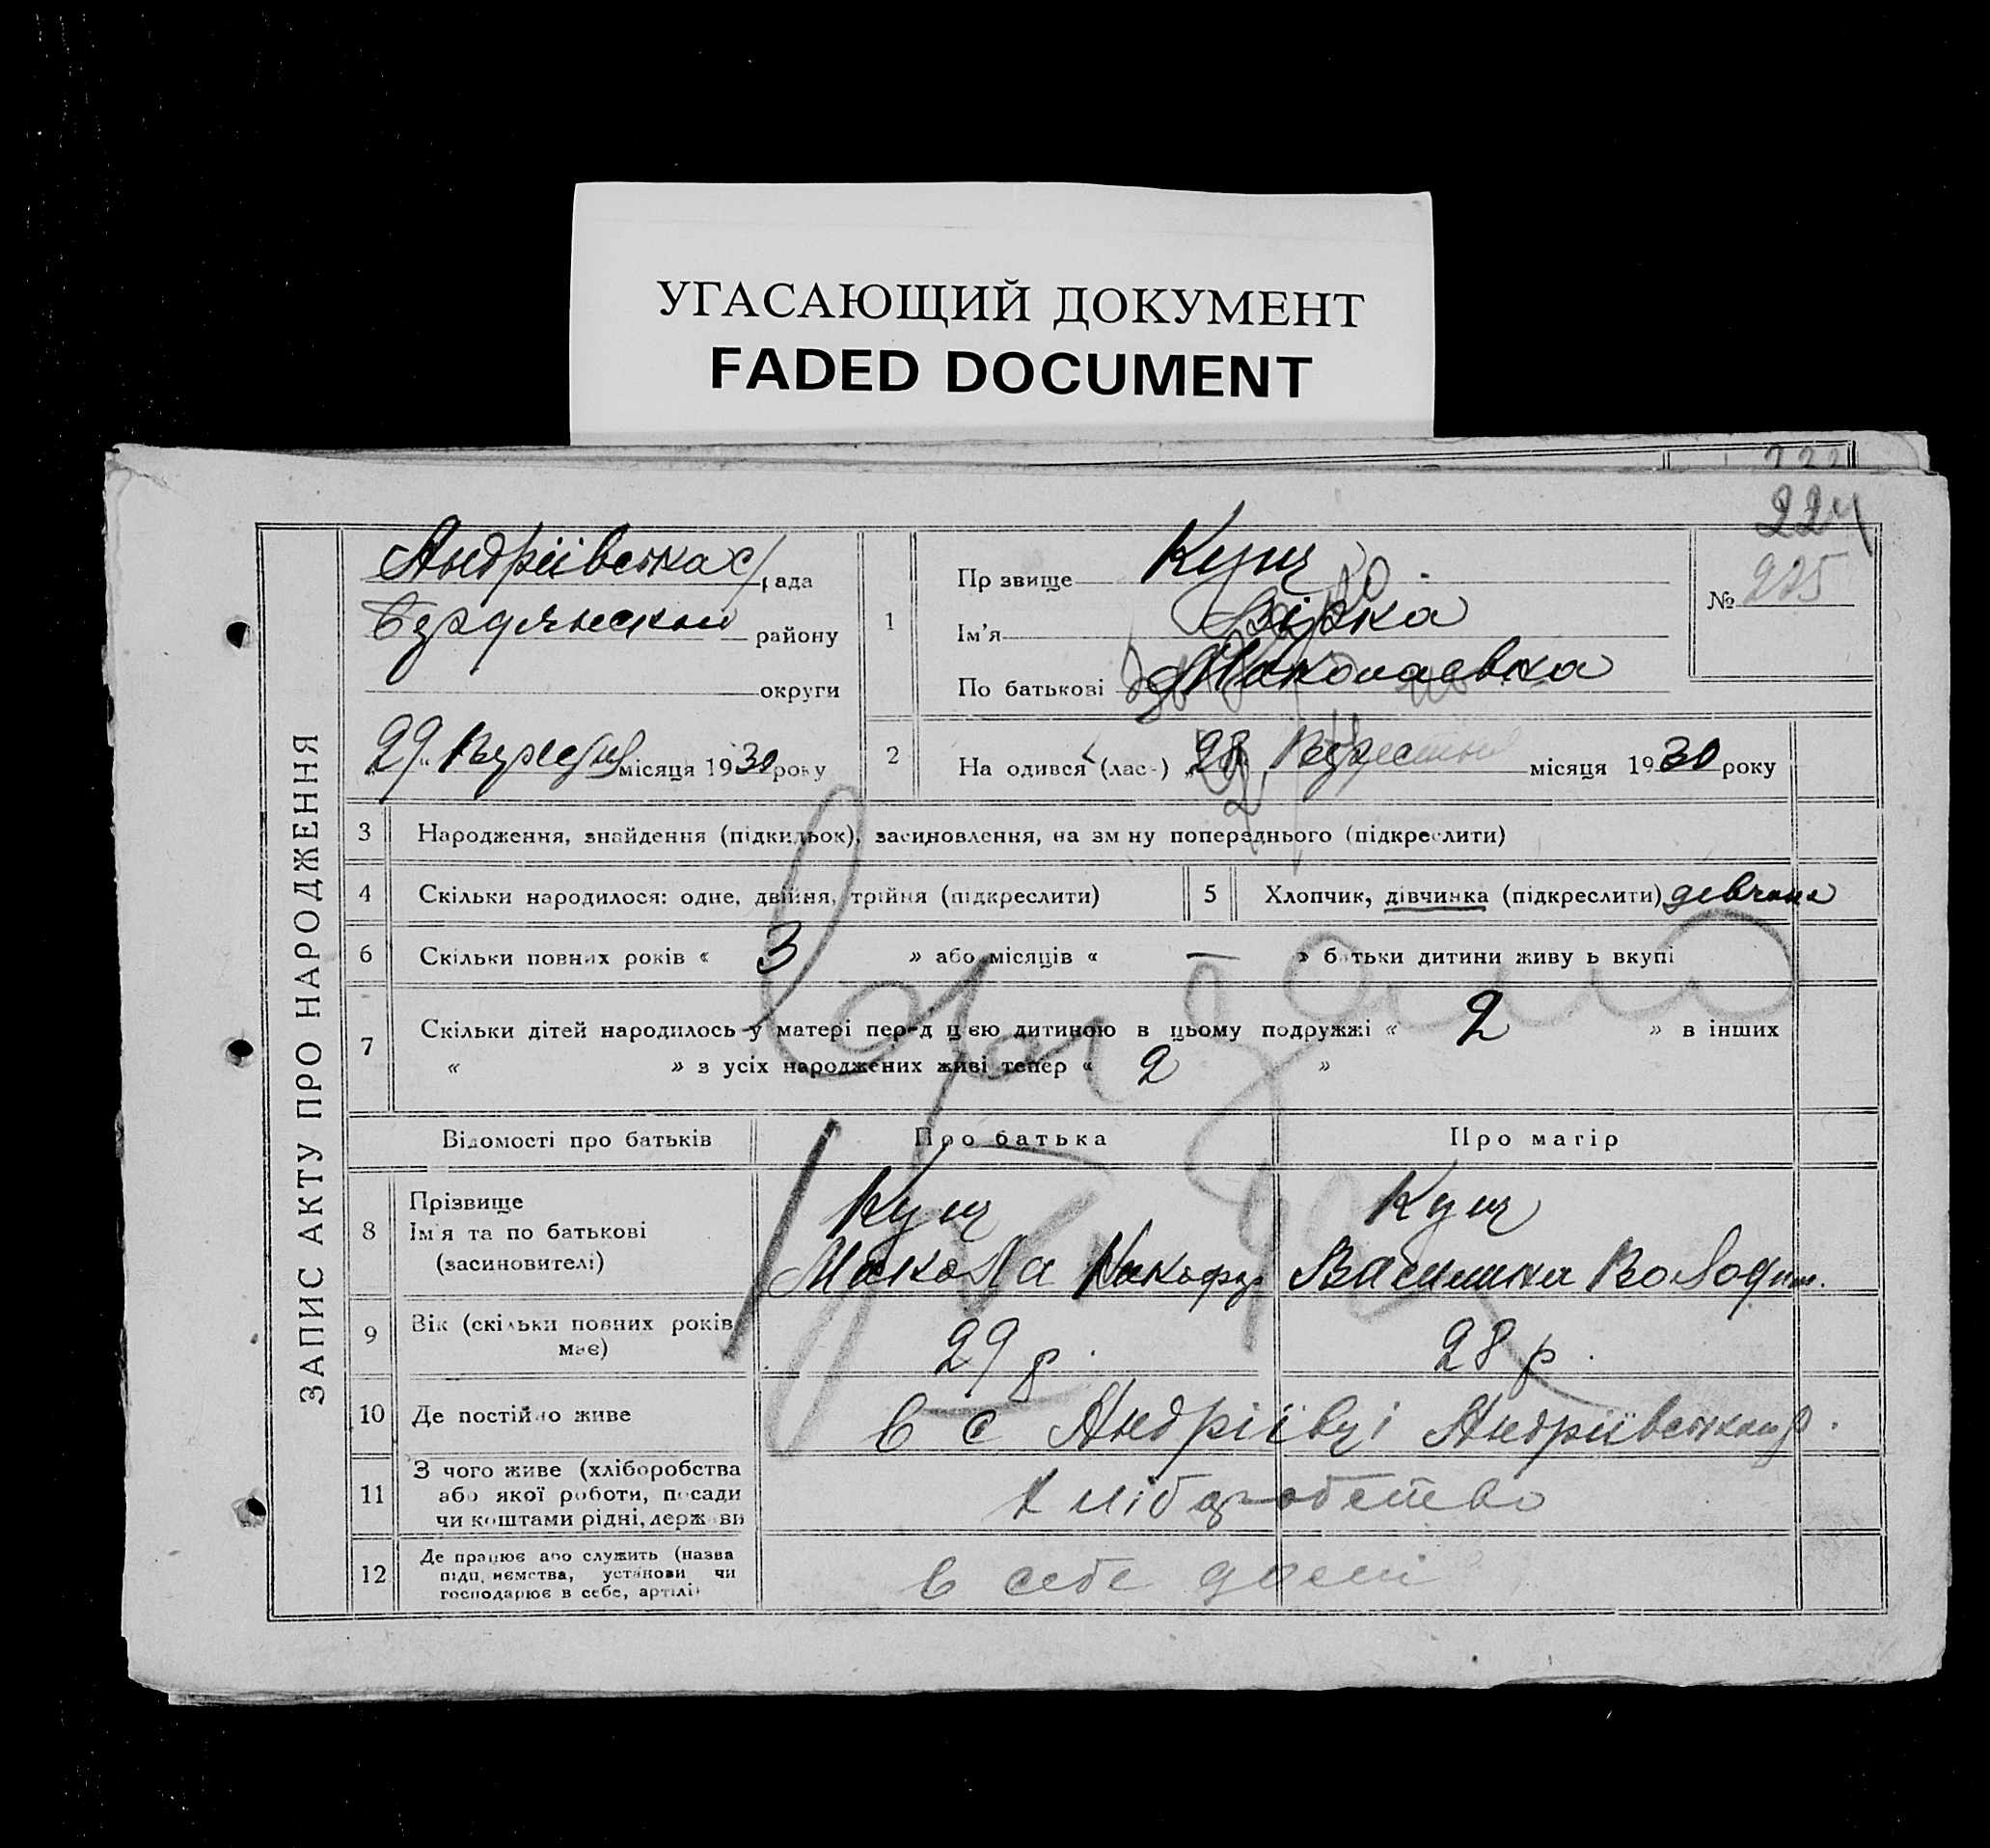 УГАСАЮЩИЙ ДОКУМЕНТ
FADED DOCUMENT
224
ЗАПИС АКТУ ПРО НАРОДЖЕННЯ
Андріївська с/рада
Бердянський району
округи
29 Вересня місяця 1930 року
1
Пр звище Кущ
Ім'я Вірка
По батькові Миколаєвна
№ 225
2 На одився (лас-) 28 Вересня місяця 1930 року
3 Народження, знайдення (підкидьок), засиновлення, на зм ну попереднього (підкреслити)
4 Скільки народилося: одне, двійня, трійня (підкреслити)
5 Хлопчик, дівчинка (підкреслити) девчина
6 Скільки повних років « 3 » або місяців « — » батьки дитини живу ь вкупі
7 Скільки дітей народилось у матері перед цією дитиною в цьому подружжі « 2 » в інших
« » з усіх народжених живі тепер « 2 »
Відомості про батьків Про батька Про матір
8 Прізвище
Ім'я та по батькові
(засиновителі)
Кущ
Микола Никофор
Кущ
Василина Володим.
9 Вік (скільки повних років
має)
29 р.
28 р.
10 Де постійно живе
в с Андріївці Андріївськ р.
11 З чого живе (хліборобства
або якої роботи, посади
чи коштами рідні, держ ви
Хліборобство
12 Де працює або служить (назва
підп, иємства, установи чи
господарює в себе, артілі)
в себе дома